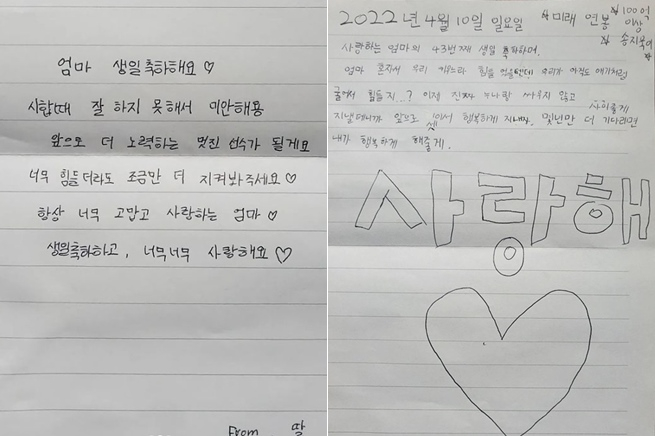 엄마 생일축하해요♡
시합때 잘 하지 못해서 미안해용
앞으로 더 노력하는 멋진 선수가 될게요
너무 힘들더라도 조금만 더 지켜봐주세요♡
항상 너무 고맙고 사랑하는 엄마♡
생일축하하고, 너무너무 사랑해요♡
From 딸
2022년 4월 10일 일요일
미래 연봉 100억
이상
송지욱
사랑하는 엄마의 43번째 생일 축하하며.
엄마 혼자서 우리 키우느라 힘들었을텐데 우리가 아직도 애기처럼
굴어서 힘들지..? 이제 진짜 누나랑 싸우지 않고 사이좋게
지낼테니까 앞으로 셋이서 행복하게 지내자. 몇년만 더 기다리면
내가 행복하게 해줄게.
사랑해